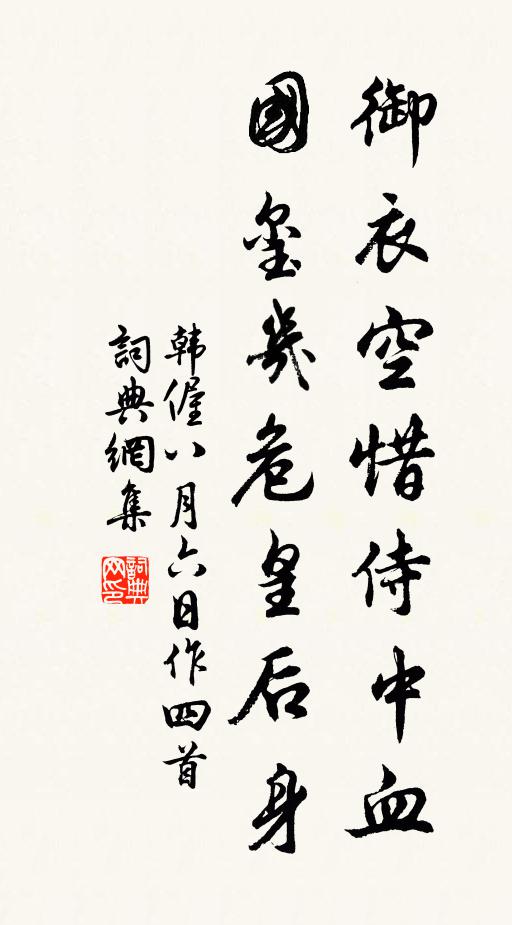 御衣空惜侍中血
國璽幾危皇后身
韩偓八月六日作四首
詞典網集
詞典网印